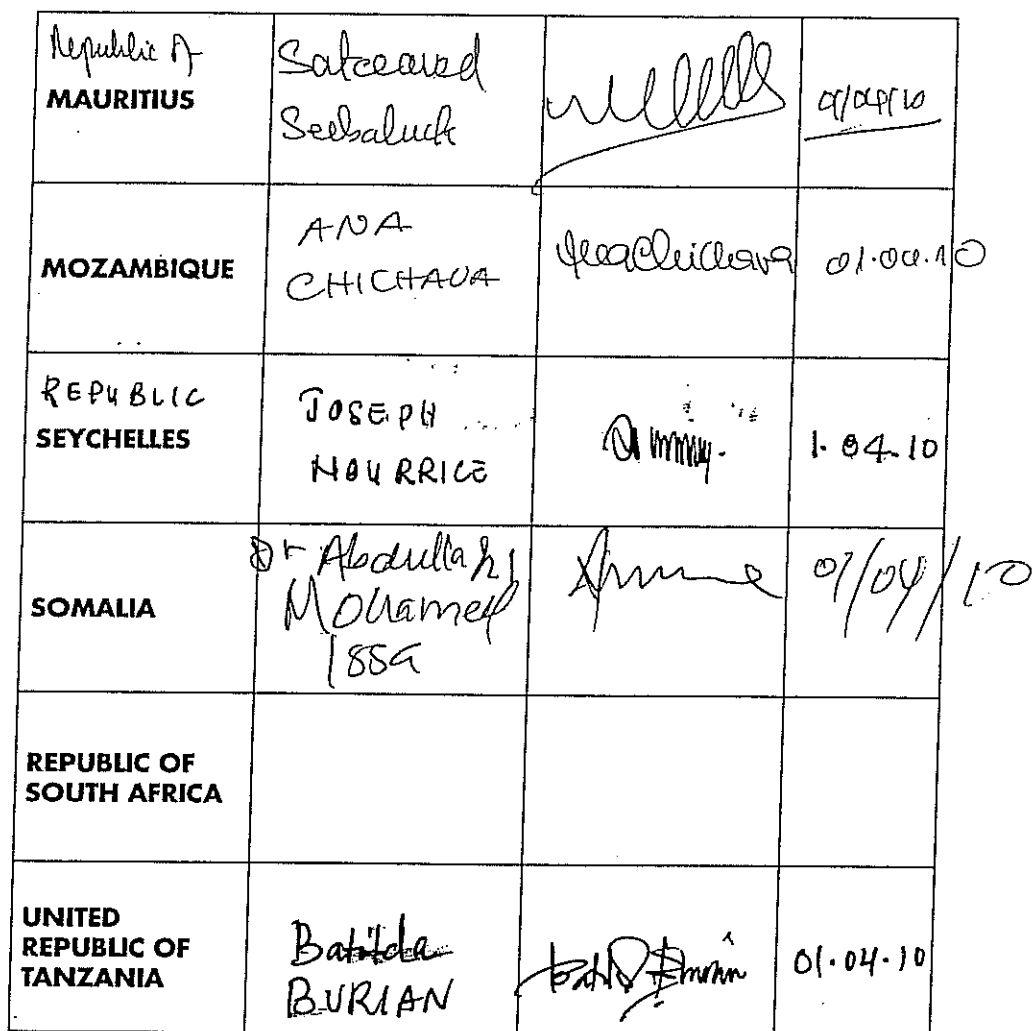 Republic of
MAURITIUS
Satceeaved
Seebaluck
01/04/10
MOZAMBIQUE
ANA
CHICHAVA
AnaChichava
01.04.10
REPUBLIC
SEYCHELLES
JOSEPH
NOURRICE
1.04.10
SOMALIA
Dr Abdullahi
Mohamed
Issa
01/04/10
REPUBLIC OF
SOUTH AFRICA
UNITED
REPUBLIC OF
TANZANIA
Batilda
BURIAN
01.04.10